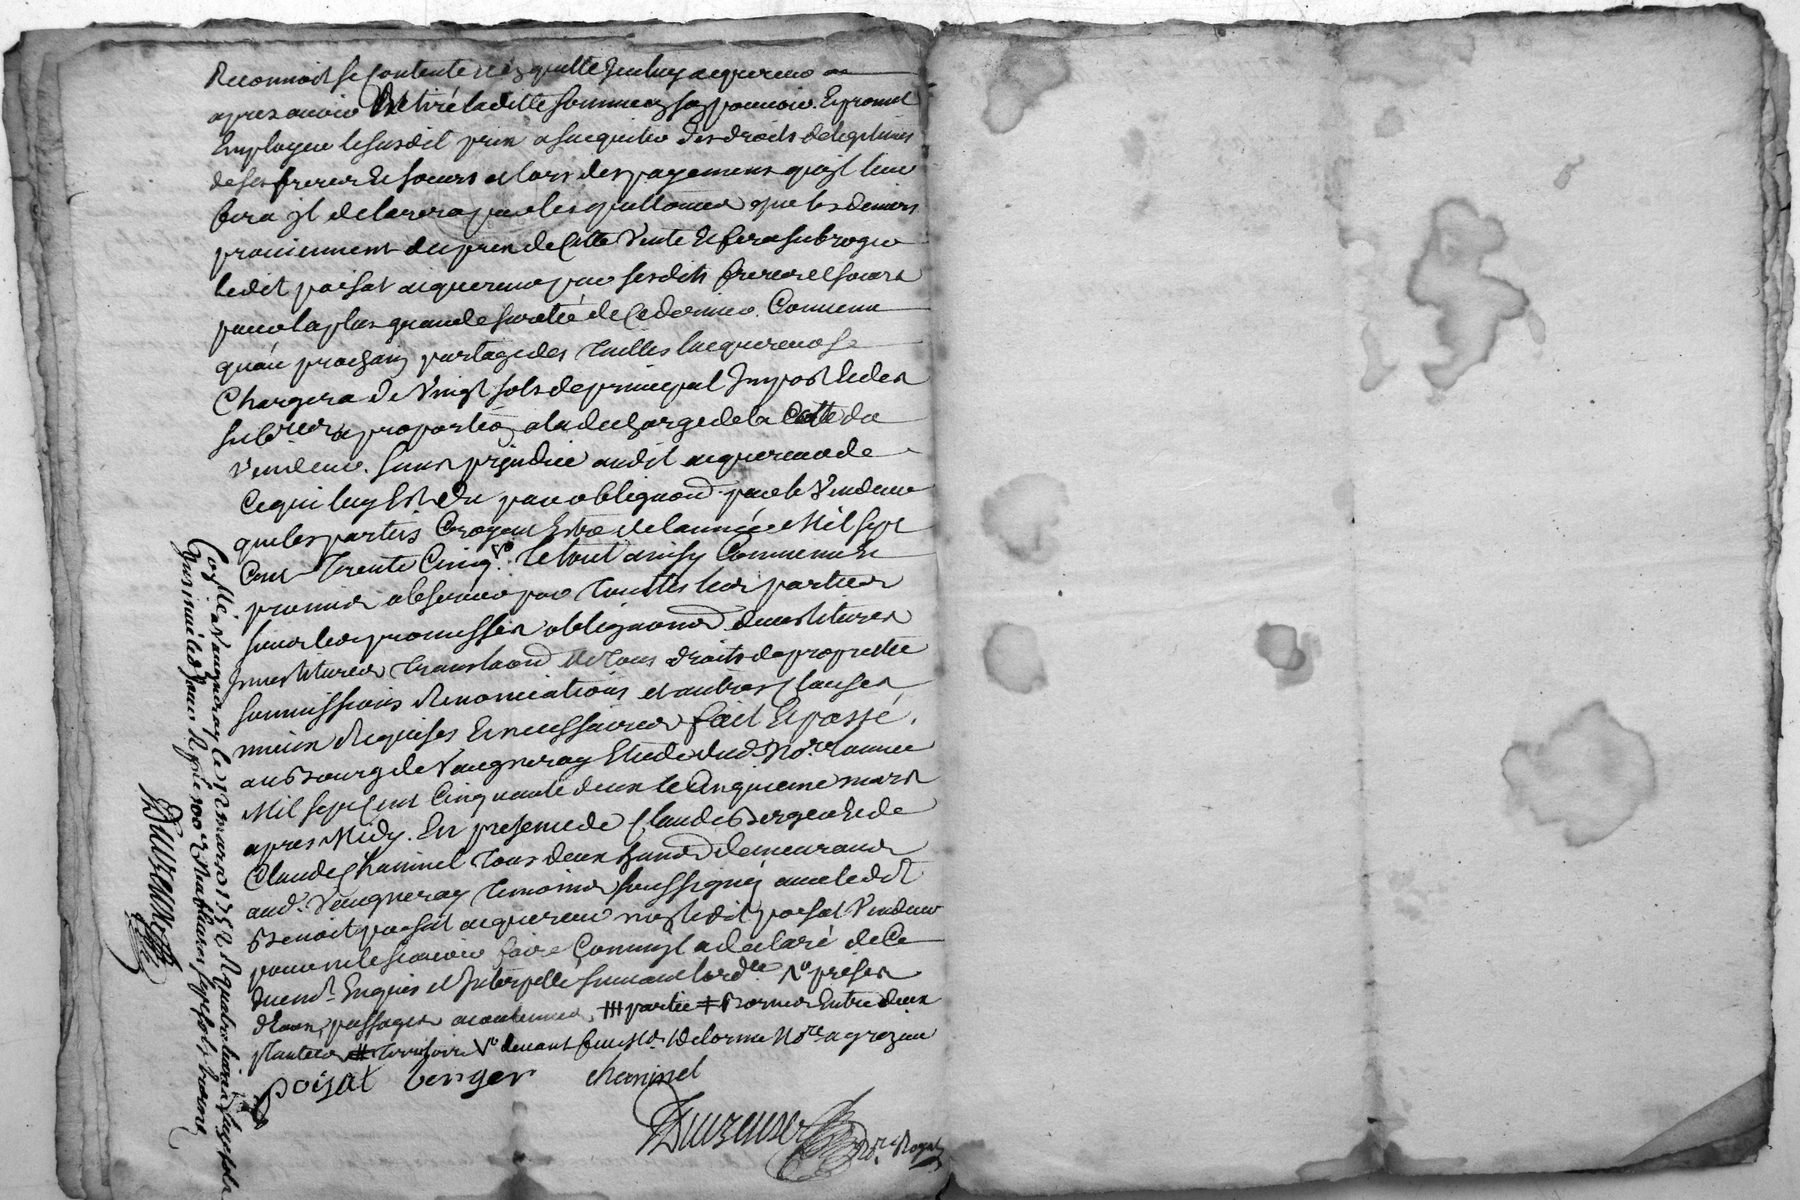 Reconnoit se Contente et quitte Iceluy acquereur
apres avoir Retiré laditte somme en son pouvoir. Et promet
Employer le susdit prix a sacquiter des droits de legitimes
de ses freres et soeurs et lors des payemens quil leur
fera il declarera par les quittances que les deniers
proviennent du prix de Cette Vente et fera subroger
ledit poisat acquereur par sesdits freres et soeurs
pour la plus grande sureté de Ce dernier. Convenu
quau prochain partage des tailles lacquereur se
Chargera de Vingt sols de principal Impost et des
a proportion a la decharge de la Cotte du
Vendeur. sans prejudice audit acquereur de
Ce qui luy Est du par obligaon. par le Vendeur
que les parties Croyent Estre de lannée Mil sept
Cent Trente Cinq Vo. le tout ainsy Convenu et
promis observer par touttes les parties
sous les promesses obligaons devestitures
Investitures translaon de tous droits de proprietté
soumissions Renonciations et autres Clauses
mieux Requises Et necessaires fait Et passé
au Bourg de Vaugneray Etude dud. Nore. lannée
Mil sept Cent Cinquante deux le Cinquieme mars
apres Midy. En presence de Claude Berger et de
Claude Chaninel tous deux demeurant
aud. Vaugneray temoins soussignés avec ledit
Benoit poisat acquereur non ledit poisat Vendeur
pour ne le scavoir faire Comm'il a declaré de Ce
duem. Enquis et Interpellé suivant lord.ce
passages acoutumés, partie Bornes Entre deux
plantées territoire Vo devant feu Me Delorme Nore. a grezieu
poizat berger chaninel
Nre. Royal
Conllé a Vaugneray le mars 1752 R quatre livres sept sols
Insinué led. jour R